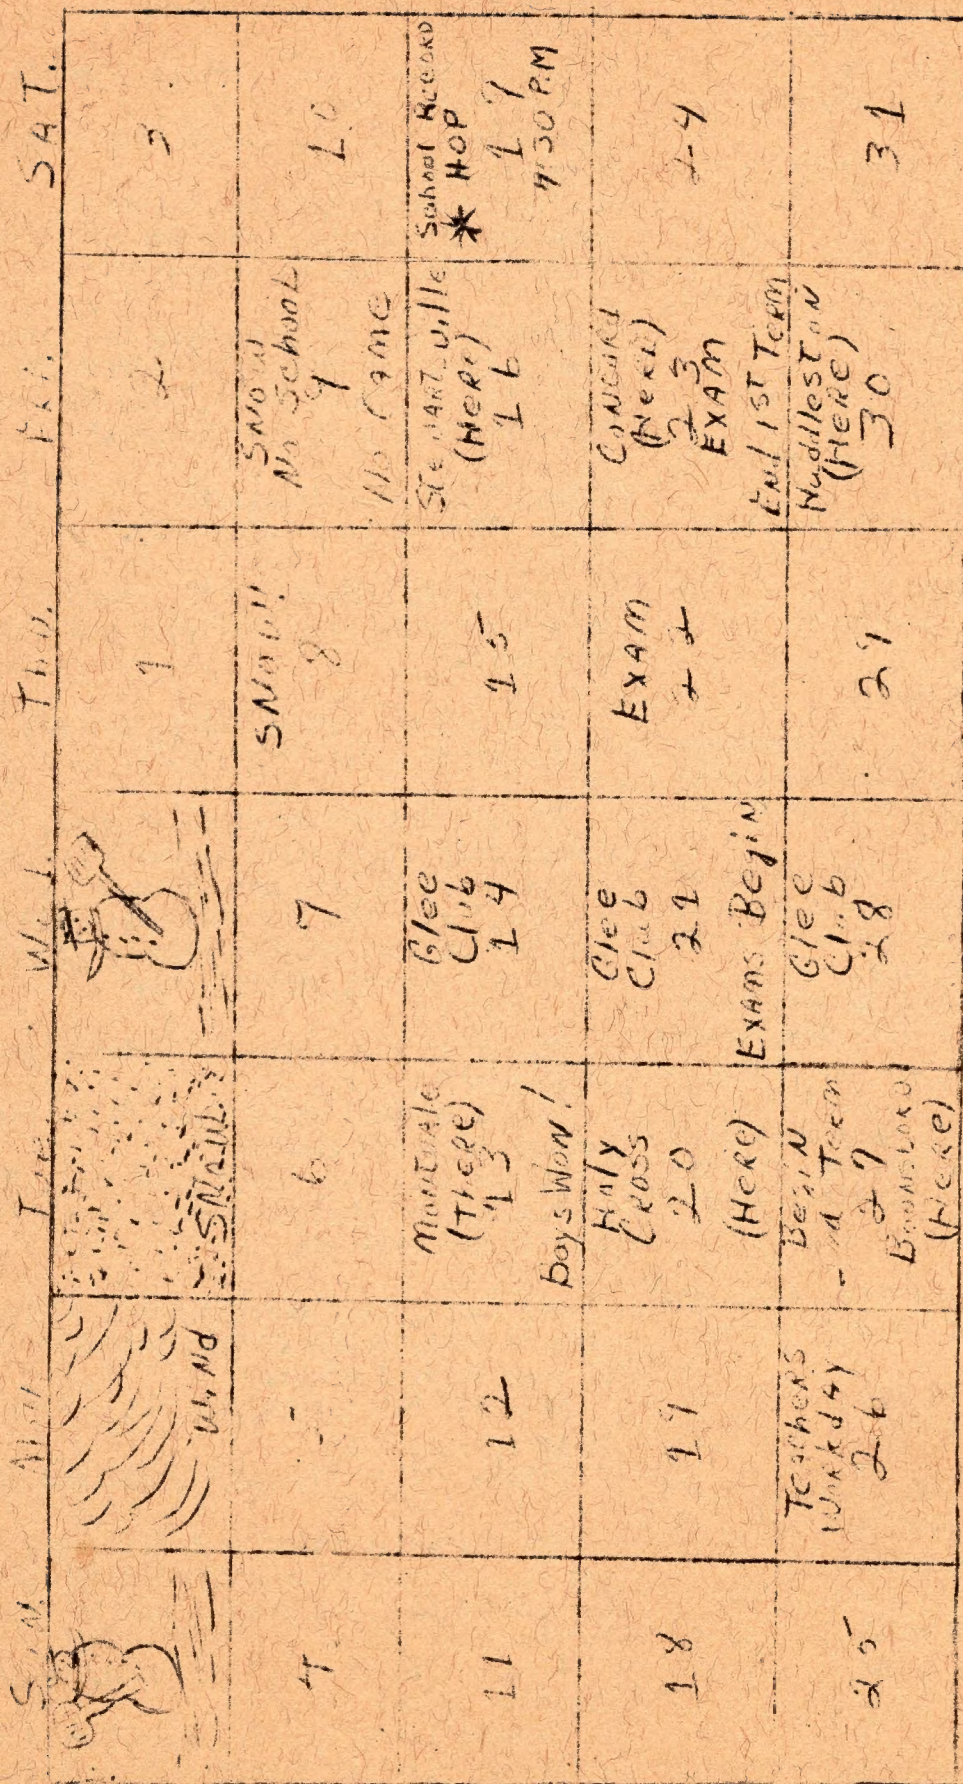 SUN. Mon. Tue. Wed. Thu. Fri. SAT.
Wind
SNOW
1
2
3
4
5
6
7
SNOW!!
8
SNOW
No School
9
No Game
10
11
12
Montvale
(There)
13
boys Won!
Glee
Club
14
15
Stewartville
(Here)
16
School Record
* HOP
17
7:30 P.M
18
19
Holy
Cross
20
(Here)
Glee
Club
21
Exams Begin
EXAM
22
Concord
(Here)
23
EXAM
End 1st Term
24
25
Teachers
Workday
26
Begin
Term
27
(Here)
Glee
Club
28
29
Huddleston
(Here)
30
31